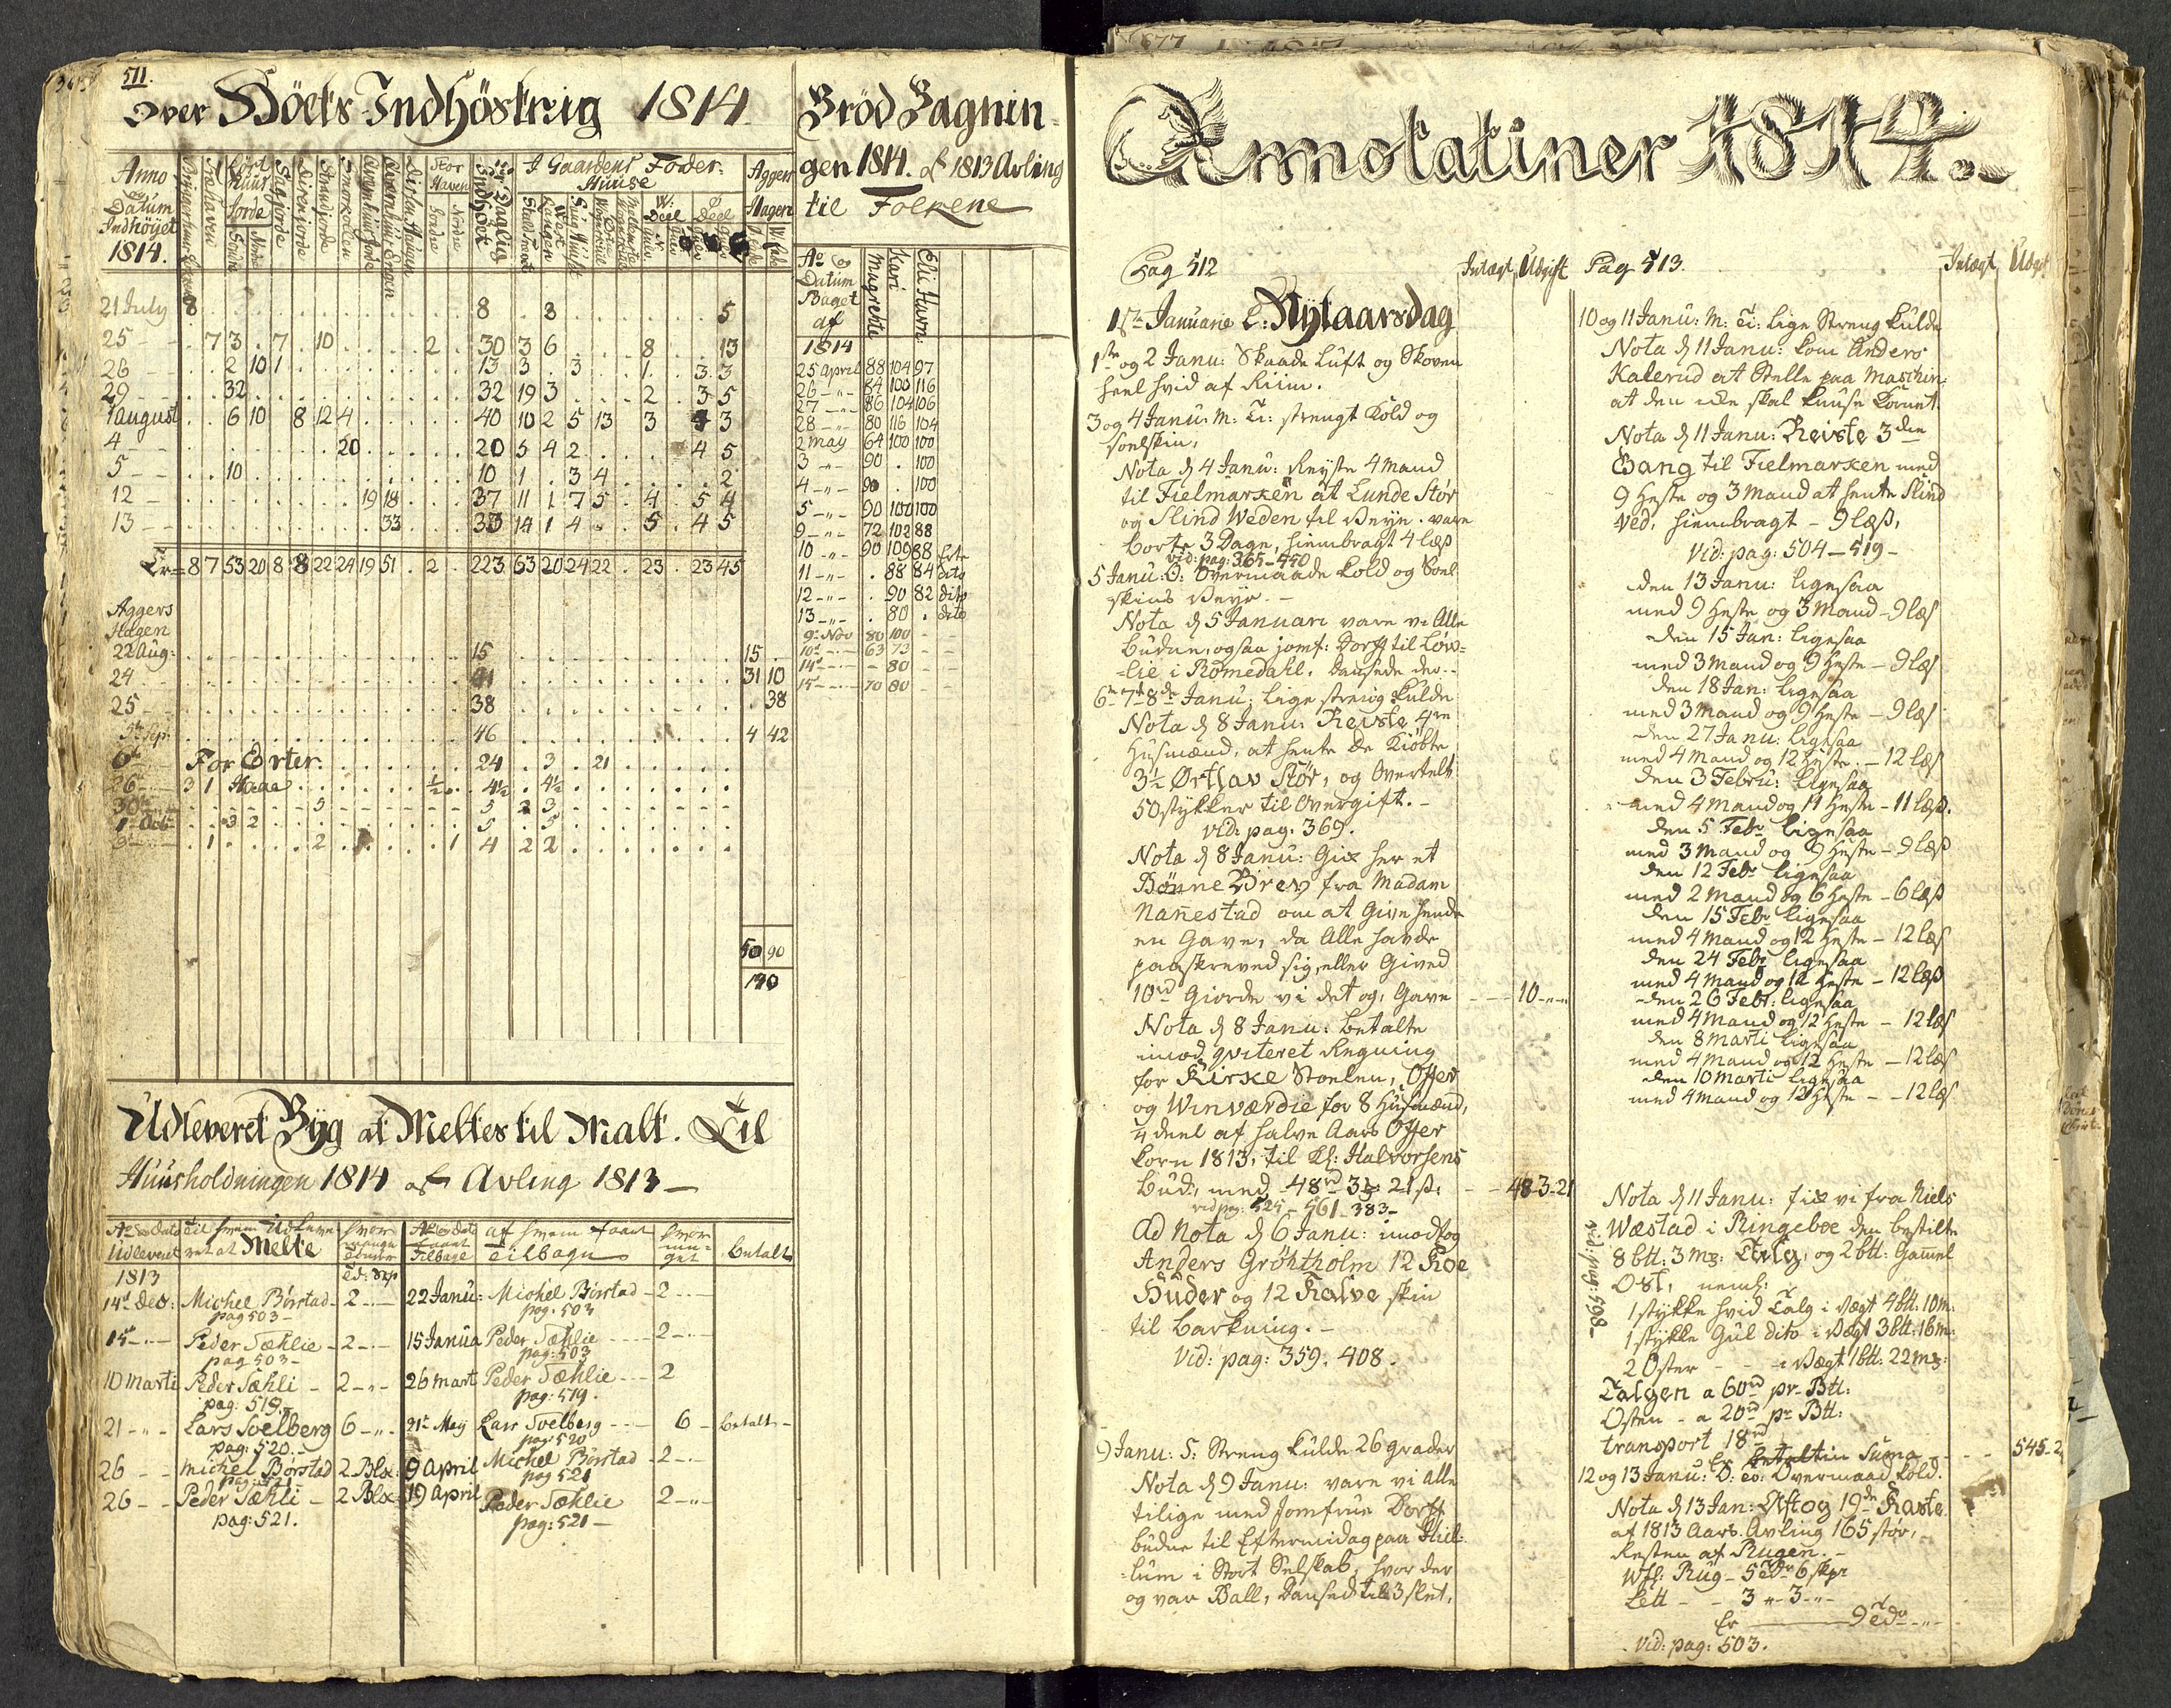 511.
Over Höets Indhöstning 1814
Anno
Datum
Indhöyet
1814.
Stor
Haven
Söndre
Nordre
Daglig
Indhöet
I Gaardens Foder-
Huuse
Aggers
Hagen
21 July 8 . . . 8 . 8 . . . 5
25 - - . 7 3 . 7 . 10 . . . 2 . 30 3 6 . . . 8 . . 13
26 - - . . 2 10 1 . . . 13 3 . 3 . . 1 . 3 3
29 - - . . 32 . . . 32 19 3 . . . 2 . 3 5
1 august . . 6 10 . 8 12 4 . . . 40 10 2 5 13 . 3 . 4 3
4 - - . . . 20 . . . 20 5 4 2 . . . 4 5
5 - - . . 10 . . . 10 1 . 3 4 . . . 2
12 - . . . 19 18 . . 37 11 1 7 5 . 4 . 5 4
13 - - . . . 33 . . . 33 14 1 4 . . 5 . 4 5
Er = 8 7 53 20 8 8 22 24 19 51 . 2 . 223 63 20 24 22 . 23 . 23 45
Aggers
Hagen
22 Aug: . . . 15 . . . 15 .
24 - . . . 41 . . . 31 10
25 - - . . . 38 . . . 38
5te Sep: . . . 46 . . . 4 42
6te - For Erter . . . 24 . 3 . 21 . . .
26te - 3 1 Haae . . . ½ . . 4½ . 4½ . . .
30te - . . . 5 - - - 5 2 3 . . .
1 Octb - . . 3 2 . . . 5 . 5 . . .
9t - . 1 . . . 2 . . . 1 4 2 2 . . .
50 90
140
Udleveret Byg at Meltes til Malt. Til
Huusholdningen 1814 af Avling 1813 —
Ao og Dato
Udleveret
til hvem Udleve
ret at Melte
hvor
mange
tönder
Ao og Dato
faaet
Tilbage
af hvem faaet
tilbage
hvor
me-
get
betalt
1813
14d Dec: Michel Börstad - 2 - - 22 Janu: Michel Börstad - 2 - -
pag 503 - pag. 503
15d - - Peder Sæhlie - 2 - - 15 Janua Peder Sæhlie - - - 2 - -
pag 503 - pag: 503
10 Marti Peder Sæhli - 2 - " - 26 mart Peder Sæhlie - - - 2
pag: 519. pag: 519.
21 - " - Lars Soelberg 6 - " - 21t May Lars Soelberg - - - 6 - betalt -
pag: 520. - pag 520
26 - - michel Börstad 2 Blx: 9 April Michel Börstad - 2 - -
pag: 521 pag 521
26 - - Peder Sæhli - 2 Blx: 19 April Peder Sæhlie 2 - " -
pag: 521. pag: 521 -
Bröd Bagnin-
gen 1814. af 1813 Avling
til Folkene
Ao og
Datum
Baget
af
Magrethe
Kari
Eli Huvn:
1814
25 April 88 104 97
26 - " - 84 100 116
27 - " - 86 104 106
28 - " - 80 116 104
2 May 64 100 100
3 - " - 90 . 100
4 - " - 90 . 100
5 - " - 90 100 100
9 - " - 72 102 88
10 - " - 90 109 88
11 - " - . 88 84 dito
12 - " - . 90 82 dito
13 - " - . 80 . dito
9 - Nov 80 100 - -
10d - - 63 73 - -
14d - - - 80 - -
15 - - 70 80 - -
Annotatiner 1814.
Pag 512
Intægt, Udgift
1ste Januarie L: Nytaarsdag
1ste og 2 Janu: Skaade Luft og Skoven
heel hvid af Riim.
3 og 4 Janu: M: Ti: strengt Kold og
soelskin,
Nota d 4 Janu: Reyste 4 Mand
til Fielmarken at Lunde Stör
og Slind Weden til Veye. vare
borte 3 Dage, hiembragt 4 læs
vid: pag: 365 - 450
5 Janu: O: Overmaade kold og Soel
skins Veyr. -
Nota d 5 Januari vare vi Alle
budne, ogsaa jomf: Dorff til Löw=
=lie i Romedahl. dansede der - -
6te 7d 8de Janu: lige streng kulde
Nota d 8 Janu: Reiste 4re
Husmænd, at hente de Kiöbte
3½ Ørtlav Stör, og Overtelt
50 stykker til Overgift. -
vid: pag: 369.
Nota d 8 Janu: Gik her et
Bönne Brev fra Madam
Nannestad om at Give hende
en Gave, da Alle havde
paaskreved sig, eller Gived
10rd Giorde vi det og, Gave - - - 10 - " - "
Nota d 8 Janu: betalte
imod qviteret Regning
for Kirke Stoelen, Offer
og Winværdie for 8 Husmænd,
¼ deel af halve Aars Offer
korn 1813, til Kl: Halvorsens
Bud, med 48rd 3 21 s: - - 48 - 3 - 21
vid pag: 525 - 561 - 383 -
Ad Nota d 6 Janu: imodtog
Anders Gröhtholm 12 Koe
Huder og 12 Kalve skin
til Barkning. -
Vid: pag: 359. 408.
9 Janu: S: Streng kulde 26 grader
Nota d 9 Janu: vare vi alle
tilige med Jomfrue Dorff
budne til Eftermidag paa Hiel-
=lum i Stort Selskab, hvor der
og var Ball, Dansed til 3 slet.
Pag 513.
Intægt, Udgift
10 og 11 Janu: M: Ti: lige Streng kulde
Nota d 11 Janu: kom Anders
Katerud at Stelle paa Maschin:
at den ikke skal knuse Kornet
Nota d 11 Janu: Reiste 3die
Gang til Fielmarken med
9 heste og 3 Mand at hente Slind
Ved, hiembragt - 9 læs,
Vid: pag: 504 - 519 -
den 13 Janu: ligesaa
med 9 heste og 3 Mand - 9 læs
den 15 Jan: ligesaa
med 3 Mand og 9 heste - 9 læs
den 18 Jan: ligesaa
med 3 Mand og 9 heste - 9 læs
den 27 Janu: ligesaa
med 4 Mand og 12 heste. - 12 læs
den 3 Febru: ligesaa
med 4 Mand og 11 heste - 11 læs.
den 5 Febr ligesaa
med 3 Mand og 9 heste - 9 læs
den 12 Febr ligesaa
med 2 Mand og 6 heste - 6 læs
den 15 Febr ligesaa
med 4 Mand og 12 heste - 12 læs
den 24 Febr ligesaa
med 4 Mand og 12 heste - 12 læs
den 26 Febr: ligesaa
med 4 Mand og 12 heste - 12 læs
den 8 Marti ligesaa
med 4 Mand og 12 heste - 12 læs
den 10 Marti ligesaa
med 4 Mand og 12 heste - - 12 læs
Nota d 11 Janu: fik vi fra Niels
Wæstad i Ringeboe den bestilte
8 btt: 3 m: Talg, og 2 btt: Gammel
Ost, neml:
vid: pag: 598 -
1 stykke hvid Talg i Vægt 4 btt: 10 m:
1 stykke Gul dito i Vægt 3 btt: 16 m:
2 Oster - - - i Vægt 1 btt: 22 m:
Talgen a 60rd pr Btt:
Osten - a 20rd pr Btt:
transport 18rd
Er betalt in Suma - - - 545 - 2
12 og 13 Janu: O: to: Overmaad kold.
Nota d 13 Jan: Aftog 19de Kaste
af 1813 Aars Avling 165 stör,
Resten af Rugen. -
Rug - 5 tdr 6 skpr
Lett - - 3 " - 3 - " -
Er — 9 tdr - " -
Vid: pag: 503.